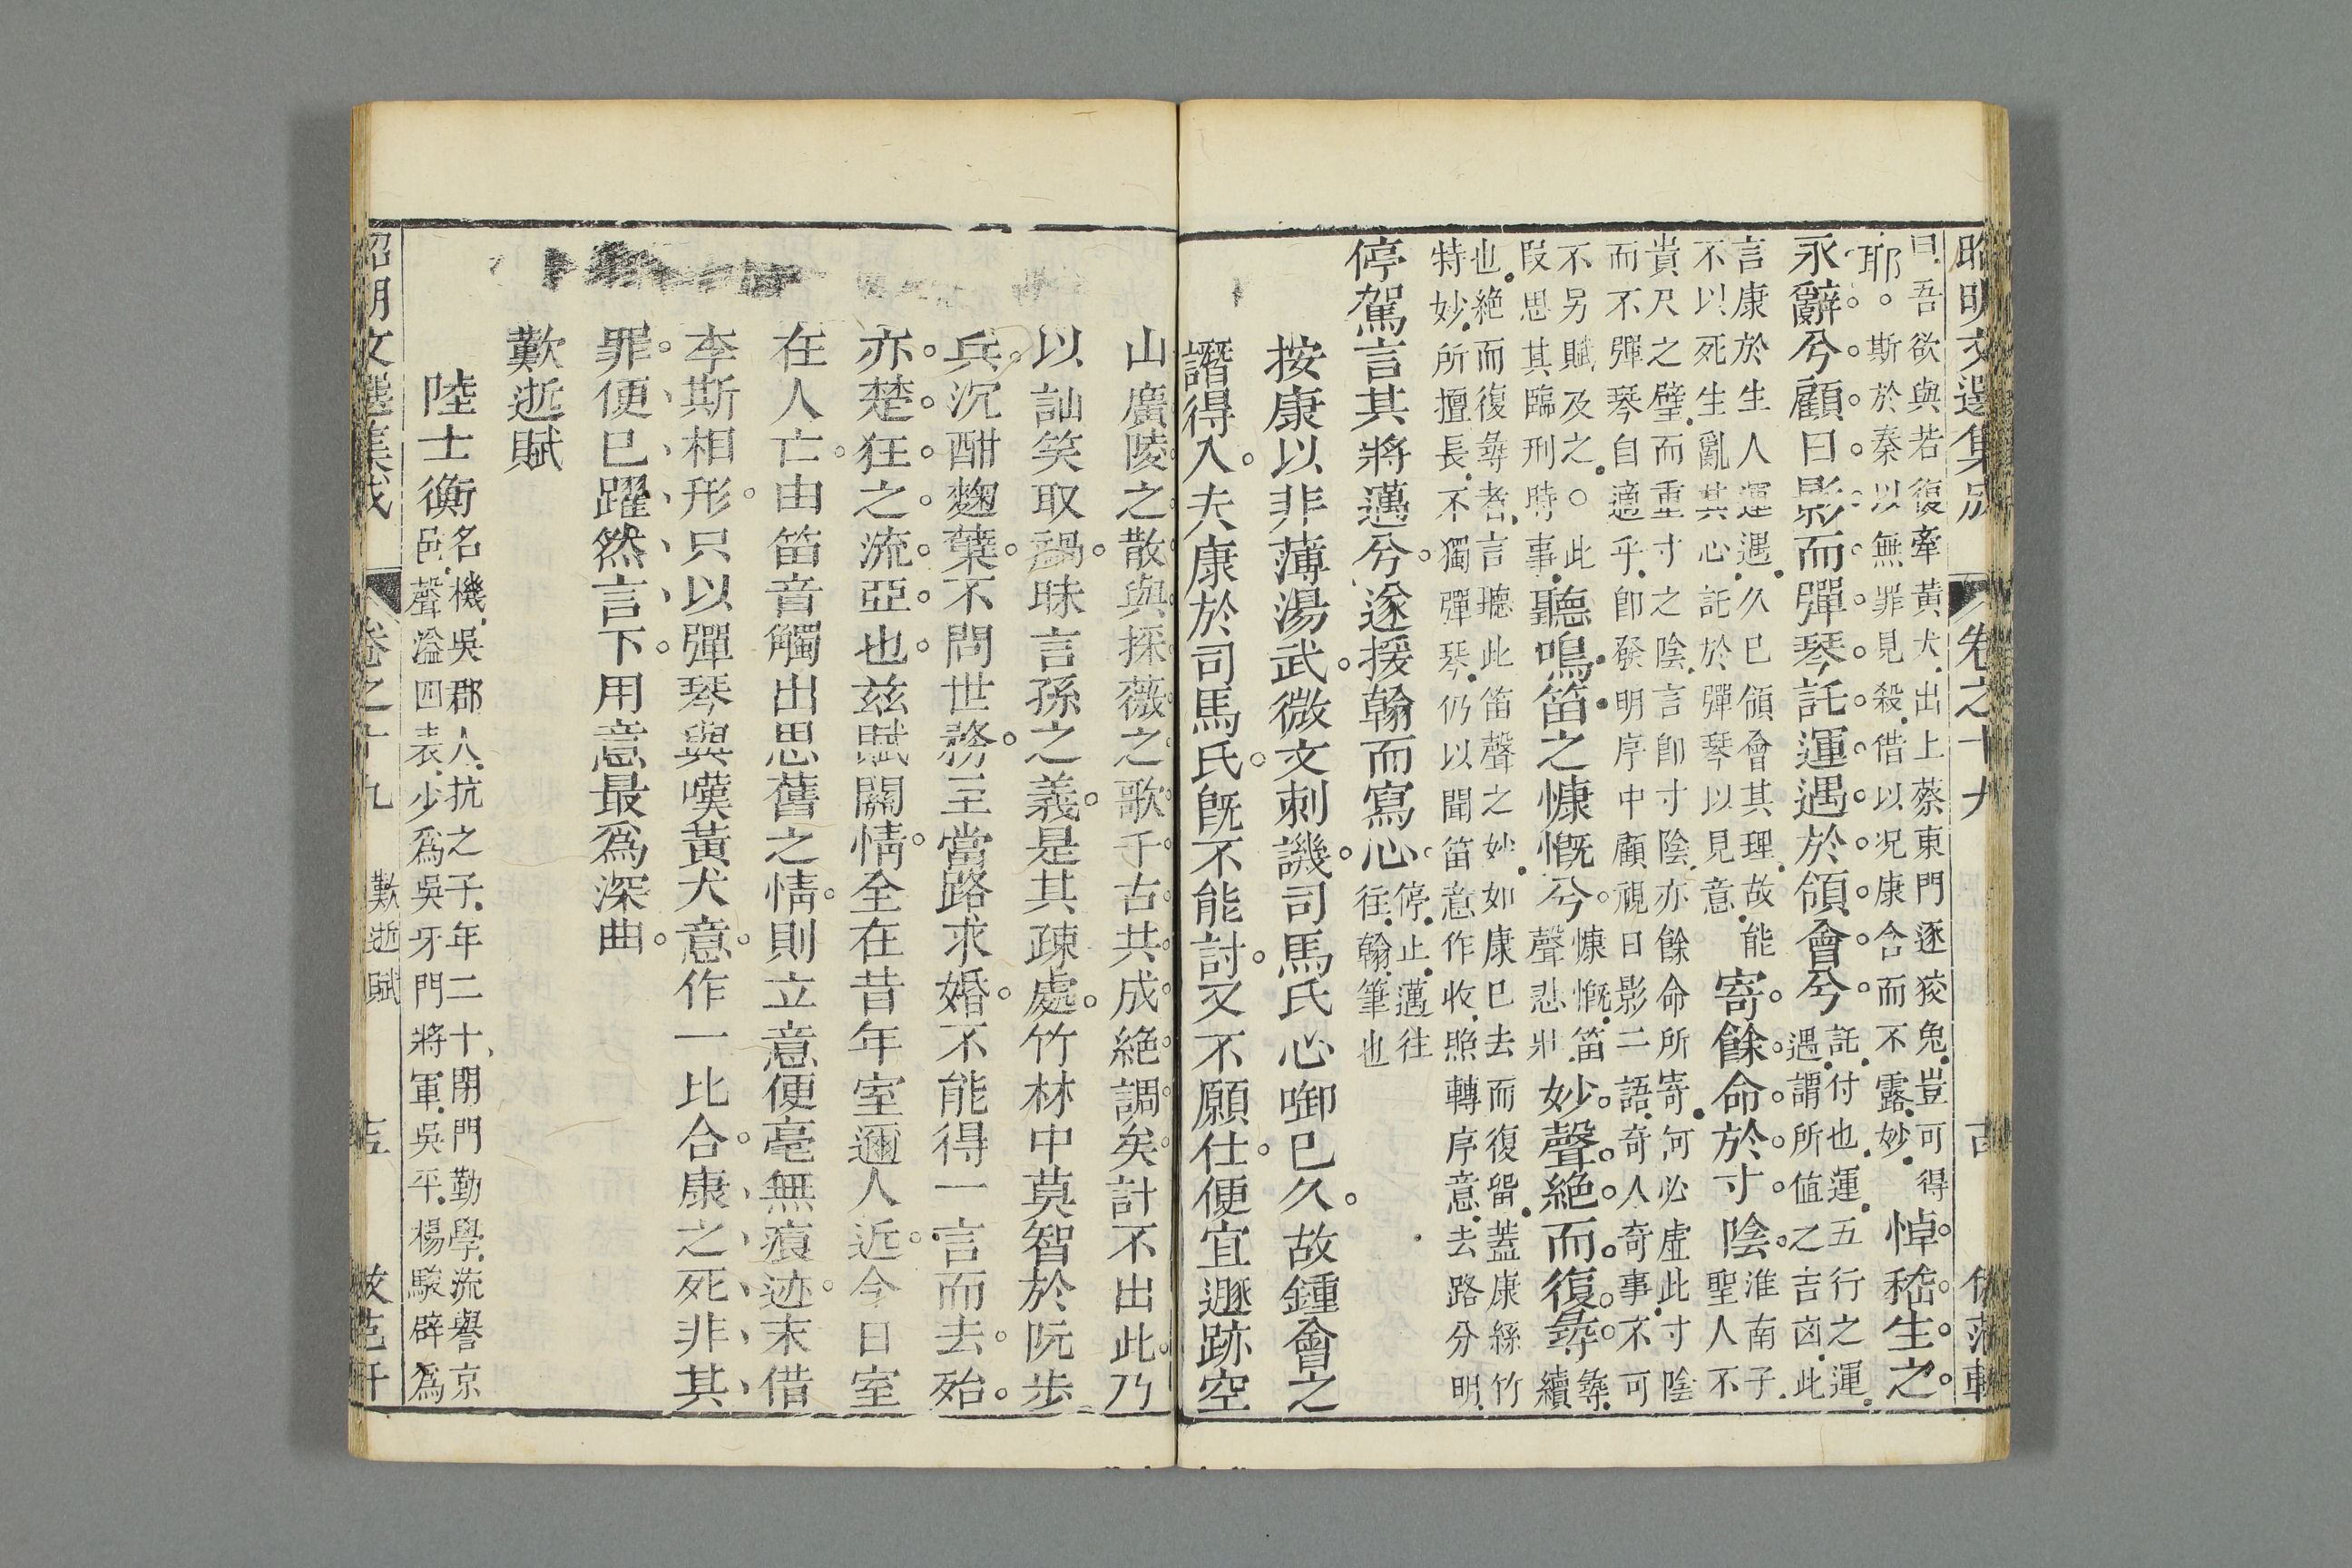 昭明文選集成 卷之十九 古
曰吾欲與若復牽黃犬出上蔡東門逐狡兔豈可得
耶。斯於秦以無罪見殺借以况康含而不露妙 悼嵇生之
永辭兮顧日影而彈琴託運遇於領會兮
託付也運五行之運
遇謂所值之吉凶此
言康於生人運遇久已領會其理故能
不以死生亂其心託於彈琴以見意
寄餘命於寸陰
淮南子
聖人不
貴尺之璧而重寸之陰言卽寸陰亦餘命所寄何必虛此寸陰
而不彈琴自適乎卽發明序中顧視日影二語奇人奇事不可
不另賦及之○此
段思其臨刑時事
聽鳴笛之慷慨兮
慷慨笛
聲悲壯
妙聲絕而復尋
尋
續
也絕而復尋者言聽此笛聲之妙如康已去而復留蓋康絲竹
特妙所擅長不獨彈琴仍以聞笛意作收照轉序意去路分明
停駕言其將邁兮遂援翰而寫心
停止邁往
往翰筆也
按康以非薄湯武微文刺譏司馬氏心啣已久故鍾會之
譖得入夫康於司馬氏旣不能討又不願仕便宜遯跡空
山廣陵之散與採薇之歌千古共成絕調矣計不出此乃
以訕笑取禍昧言孫之義是其疎處竹林中莫智於阮步
兵沉酣麴糵不問世務至當路求婚不能得一言而去殆
亦楚狂之流亞也兹賦關情全在昔年室邇人近今日室
在人亡由笛音觸出思舊之情則立意便毫無痕迹末借
李斯相形只以彈琴與嘆黃犬意作一比合康之死非其
罪便已躍然言下用意最爲深曲
歎逝賦
陸士衡
名機吳郡人抗之子年二十閉門勤學流譽京
邑聲溢四表少爲吳牙門將軍吳平楊駿辟爲
昭明文選集成 卷之十九 歎逝賦